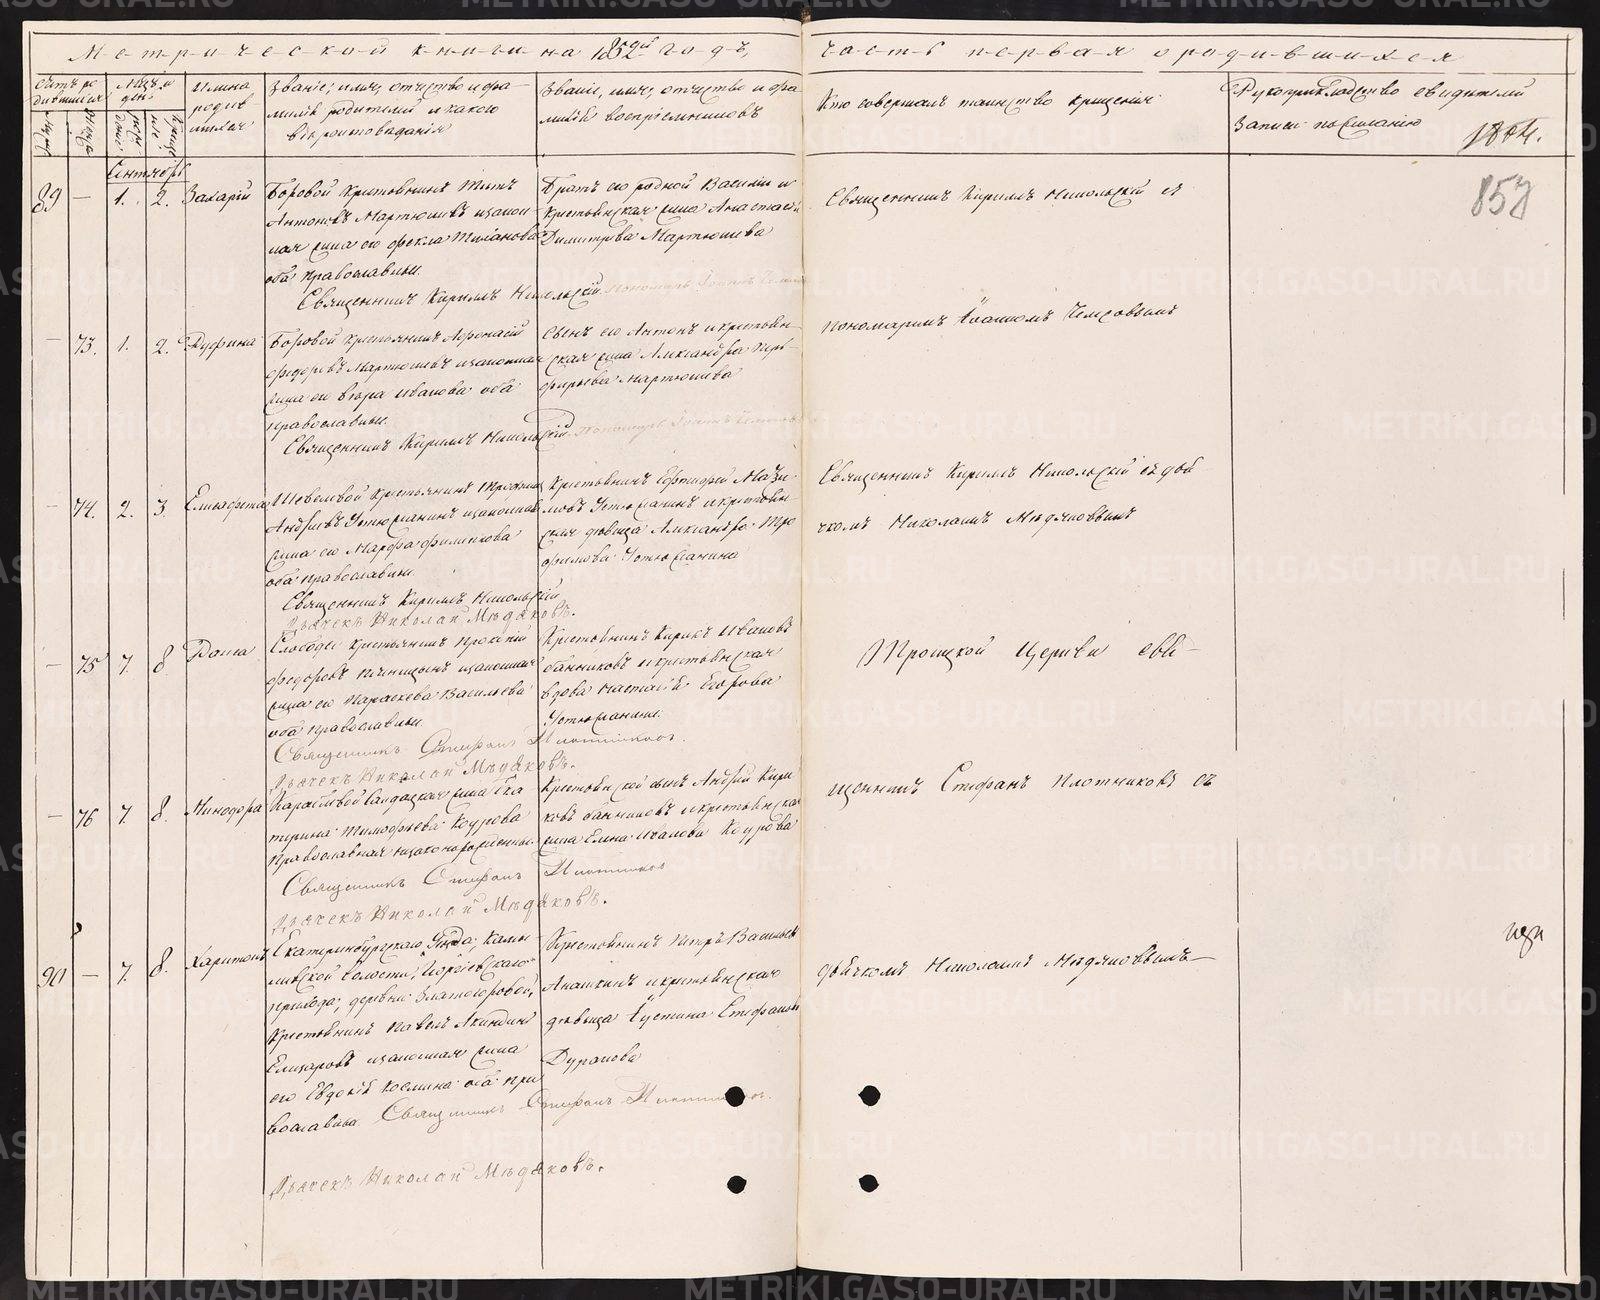 Метрической книги на 1852й годъ, часть первая о родившихся
Счетъ родившихся
Мѣсяцъ и день
Имена родившихся
Званіе, имя, отчество и фамилія родителей и какого вѣроисповѣданія
Званіе, имя, отчество и фамилія воспріемниковъ
Кто совершалъ таинство крещенія
Рукоприкладство свидѣтелей записи по желанію
Сентябрь
89 — 1. 2. Захарій
Боровой Крестьянинъ Титъ
Антоновъ Мартюшевъ и закон-
ная жена его Фекла
оба православные.
Священникъ Кириллъ Никольскій
Братъ его родной Василій и
крестьянская жена Анастасія
Димитріева Мартюшева
Священникъ Кириллъ Никольскій съ
857
— 73. 1. 2. Руфина
Боровой крестьянинъ Афонасій
Федоровъ Мартюшевъ и законная
жена его Вѣра Иванова оба
православные.
Священникъ Кириллъ Никольскій
Сынъ его Антонъ и крестьян-
ская жена Александра Пор-
фирьева Мартюшева
пономаремъ Іоанномъ
— 74. 2. 3. Елисавета
крестьянинъ
Андреевъ Устюжанинъ и законная
жена его Марфа Филипова
оба православные.
Священникъ Кириллъ Никольскій
Дьячекъ Николай Мѣдяковъ.
Крестьянинъ
Устюжанинъ и крестьян-
ская дѣвица Александра Тро-
фимова Устюжанина
Священникъ Кириллъ Никольскій съ дья-
чкомъ Николаемъ Мѣдяковымъ
— 75 7. 8 Раиса
Слободы крестьянинъ Прокопій
Федоровъ Пьянцынъ и законная
жена его Параскева Васильева
оба православные.
Священникъ Стефанъ Плотниковъ.
Дьячекъ Николай Мѣдяковъ.
Крестьянинъ Кирикъ Ивановъ
Банниковъ и крестьянская
вдова Настасія Егорова
Устюжанина.
Троицкой Церкви свя-
— 76 7. 8. Минодора
Солдатская жена Ека-
терина Тимофеева Коурова
Православная незаконорожденны.
Священникъ Стефанъ Плотниковъ
Дьячекъ Николай Мѣдяковъ.
Крестьянской сынъ Андрей Кири-
ковъ Банниковъ и крестьянская
жена Елена Иванова Коурова
щенникъ Стефанъ Плотниковъ съ
90 — 7. 8. Харитонъ
Екатеринбургскаго Уѣзда,
волости, Георгіевскаго
прихода, деревни Златогоровой,
Крестьянинъ Павелъ
Елизаровъ и законная жена
его Евдокія Космина оба пра-
вославные. Священникъ Стефанъ Плотниковъ.
Дьячекъ Николай Мѣдяковъ.
Крестьянинъ Петръ Васильевъ
и крестьянская
дѣвица Іустина Стефанова
Дуракова
дьячкомъ Николаемъ Мѣдяковымъ—
METRIKI.GASO-URAL.RU